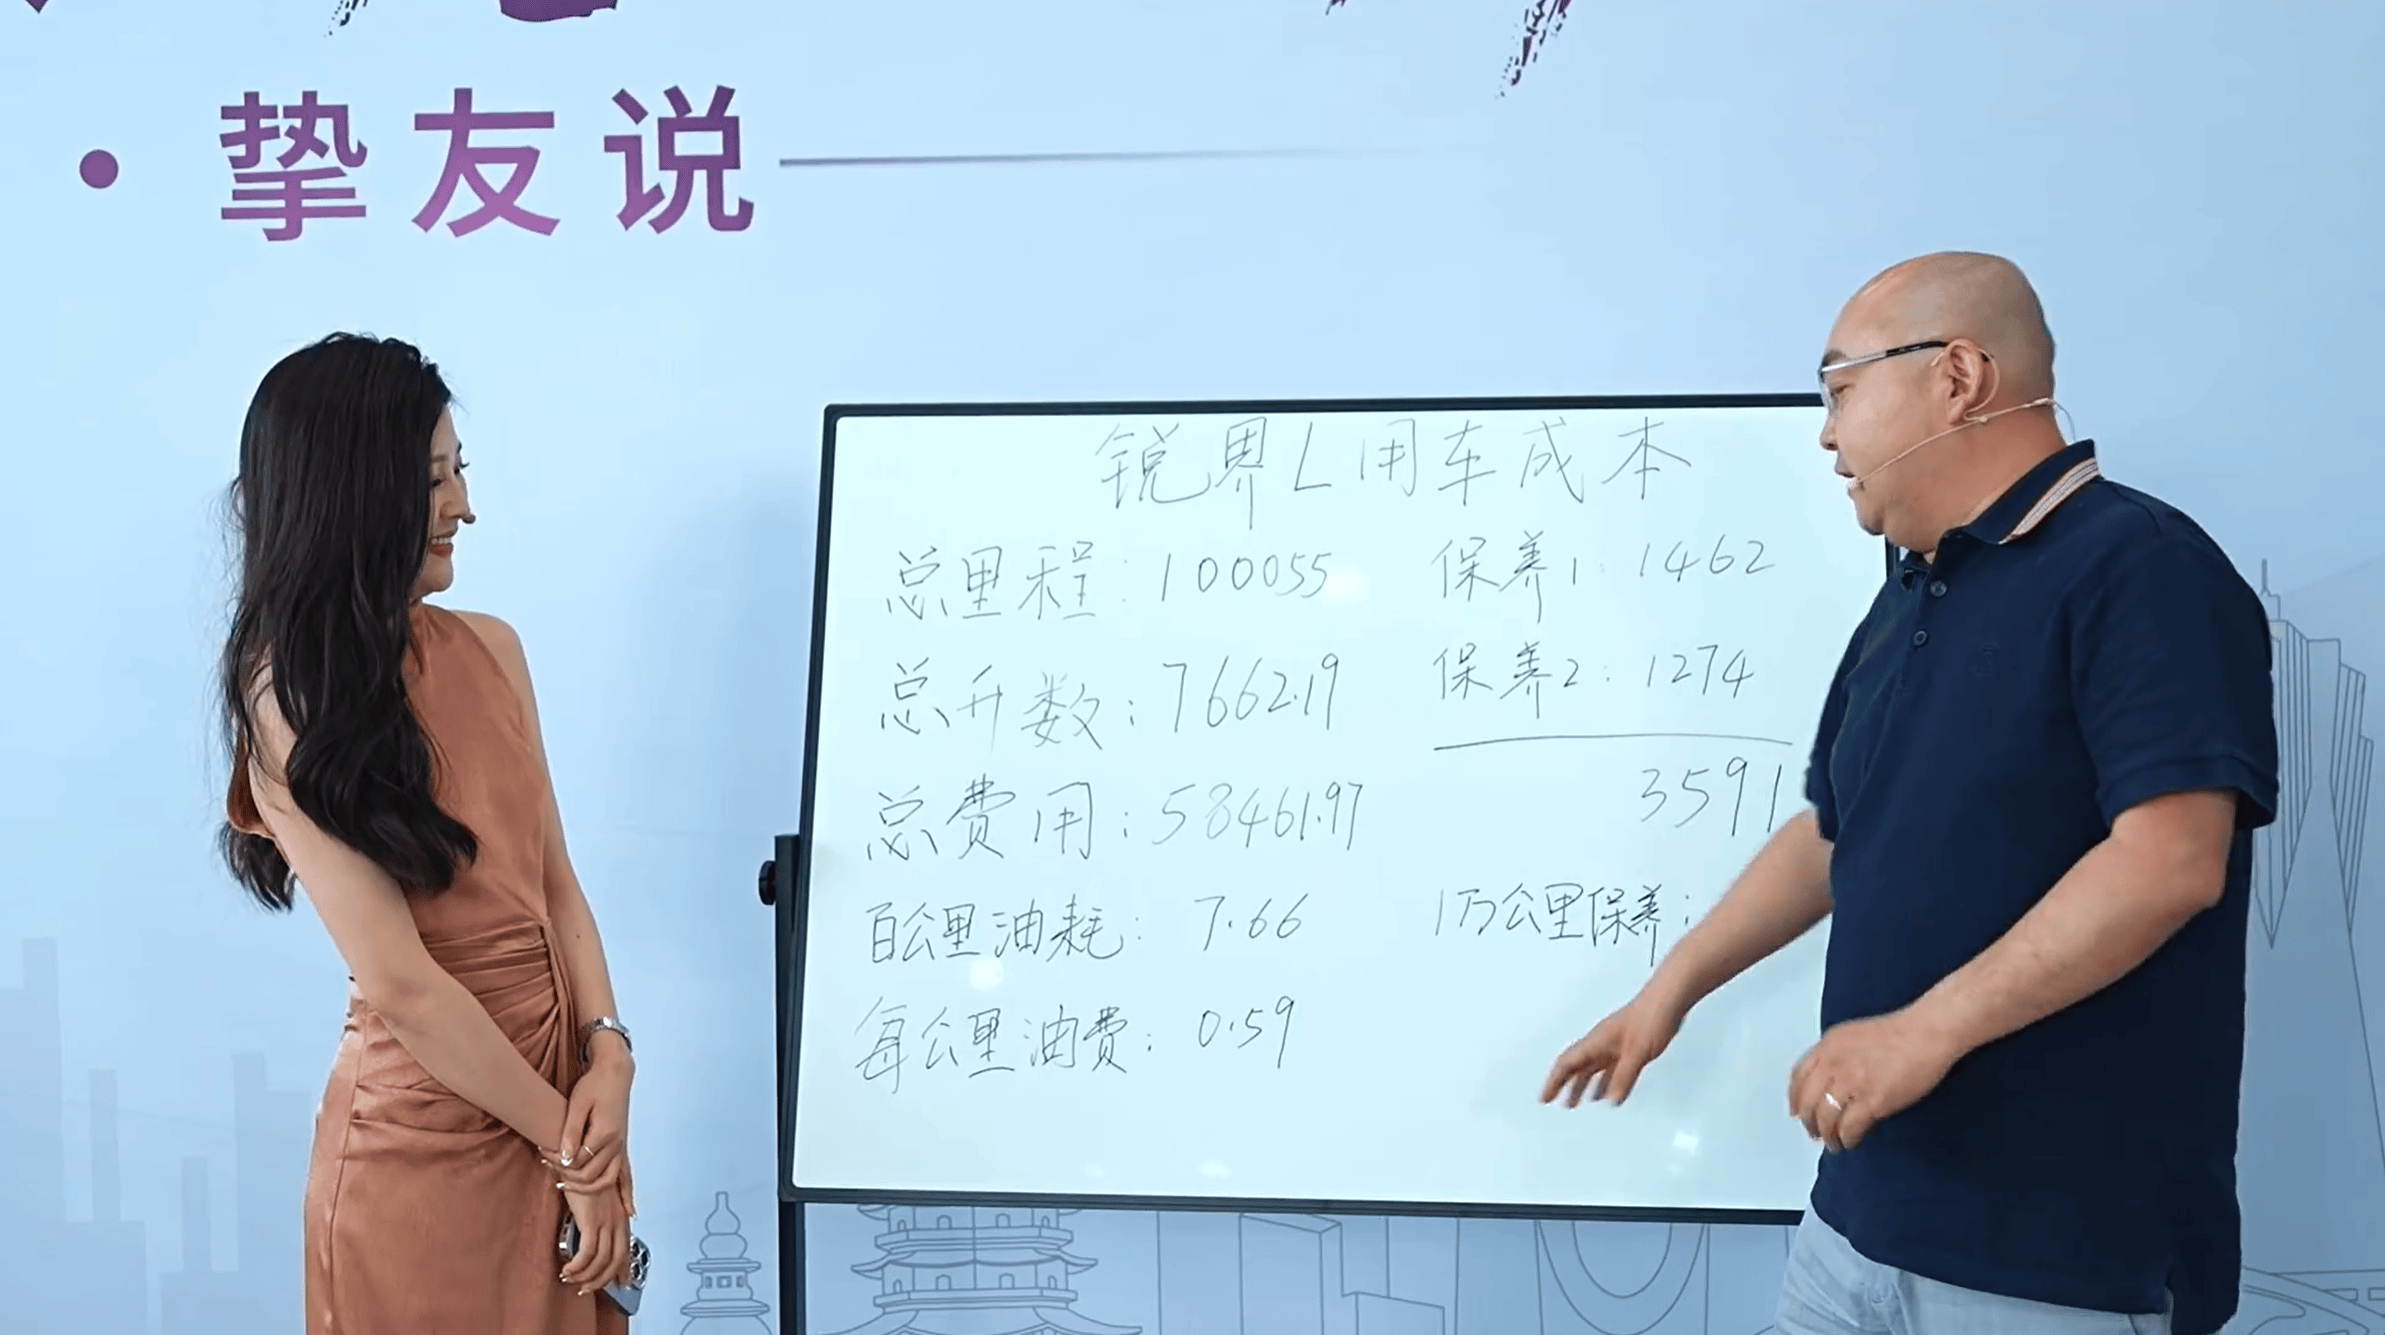 · 挚友说
锐界L用车成本
总里程：100055
总升数：7662.19
总费用：58461.97
百公里油耗：7.66
每公里油费：0.59
保养1：1462
保养2：1274
3591
1万公里保养：